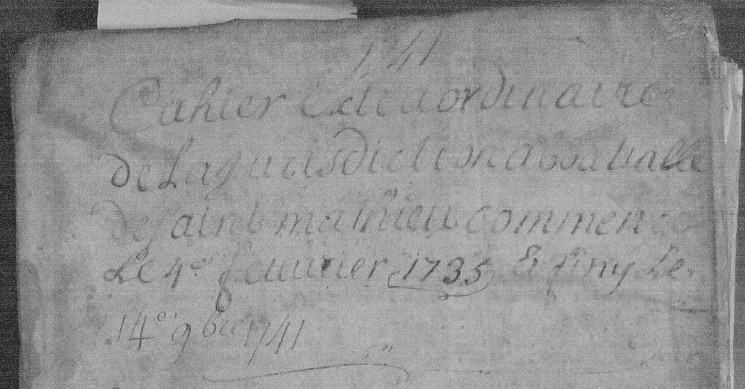 1741
Cahier Extraordinaire
de La jurisdiction abbatialle
de saint mathieu commencé
Le 4e feuvrier 1735 & finy Le
14e 9bre 1741